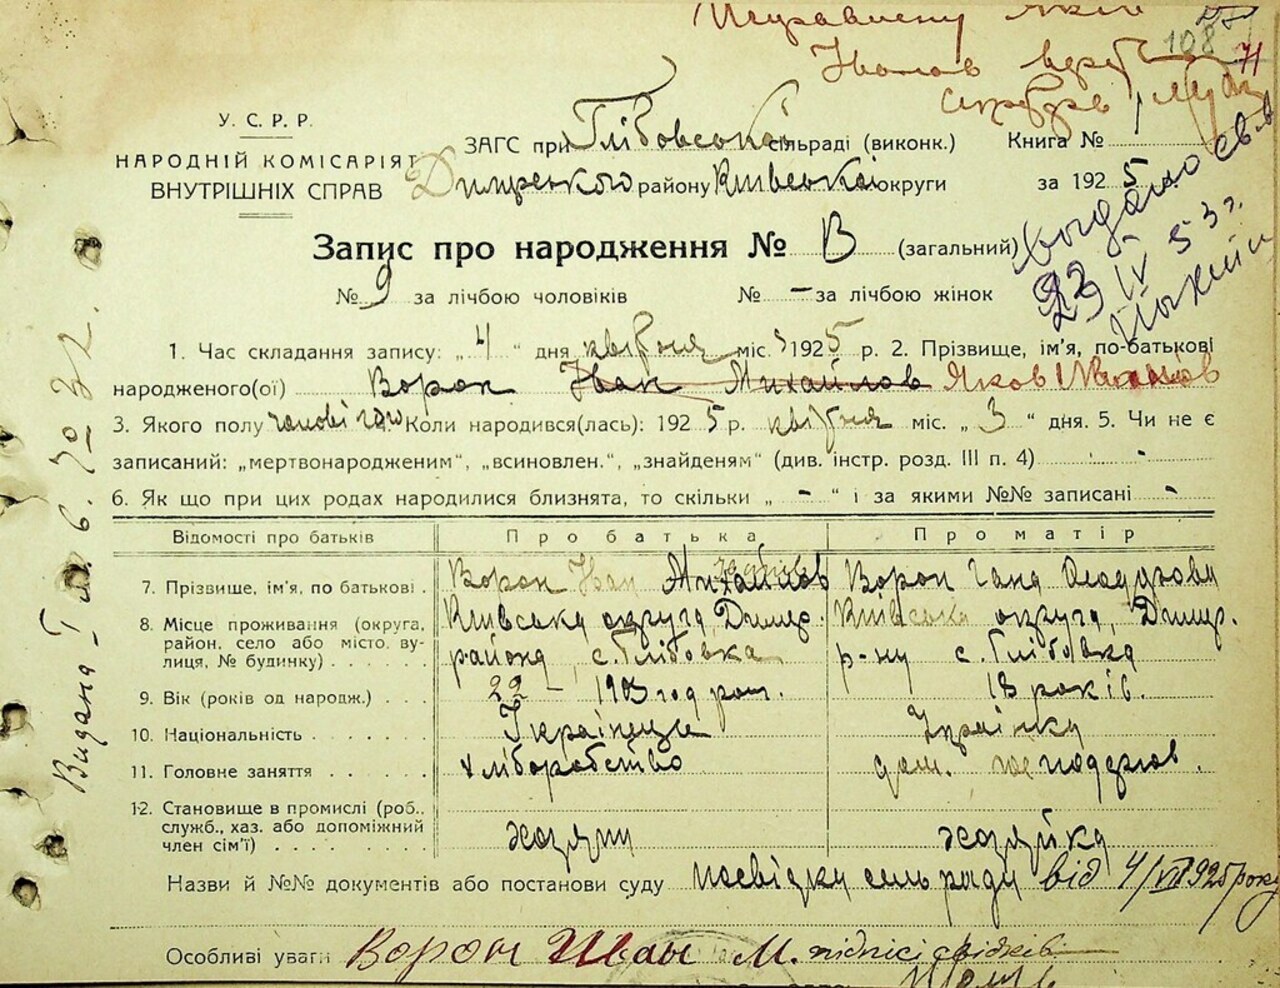 108
71
У. С. Р. Р.
НАРОДНІЙ КОМІСАРІЯТ
ВНУТРІШНІХ СПРАВ
ЗАГС при Глібовській сільраді (виконк.)
Димерського району Київської округи
Книга №
за 1925 р.
Запис про народження № В (загальний)
№ 9 за лічбою чоловіків № – за лічбою жінок
видано св-в
23 IV 53 г.
1. Час складання запису: „4“ дня квітня міс. 1925 р. 2. Прізвище, ім’я, по-батькові
народженого(ої) Ворон Іван Михайлов Яков Иванов
3. Якого полу чоловічого 4. Коли народився(лась): 1925 р. квітня міс. „3“ дня. 5. Чи не є
записаний: „мертвонародженим“, „всиновлен.“, „знайденям“ (див. інстр. розд. III п. 4) -
6. Як що при цих родах народилися близнята, то скільки „-“ і за якими №№ записані -
Відомості про батьків Про батька Про матір
7. Прізвище, ім’я, по батькові . Ворон Іван Михайлов Ворон Ганд
8. Місце проживання (округа, район, село або місто, вулиця, № будинку) Київська округа, Димер. району, с. Глібовка Київська округа, Димер. р-ну с. Глібовка
9. Вік (років од народж.) 22 – 1903 год рож. 18 років.
10. Національність Українець Українка
11. Головне заняття хліборобство дом. господарюв.
12. Становище в промислі (роб., служб., хаз. або допоміжний член сім’ї) хозяин хозяйка
Назви й №№ документів або постанови суду посвідку сельради від 4/VII 1925 року
Особливі уваги Ворон Иван М. підписі свідків
Видана